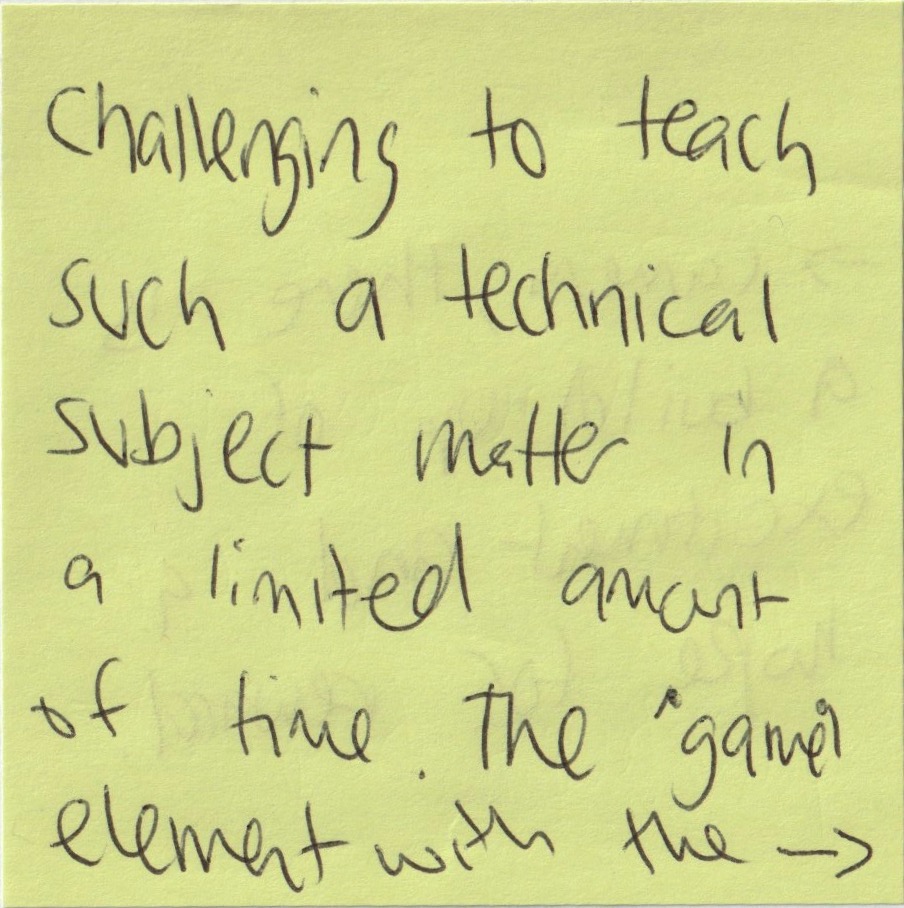 Challenging to teach
such a technical
subject matter in
a limited amount
of time. The "game"
element with the →